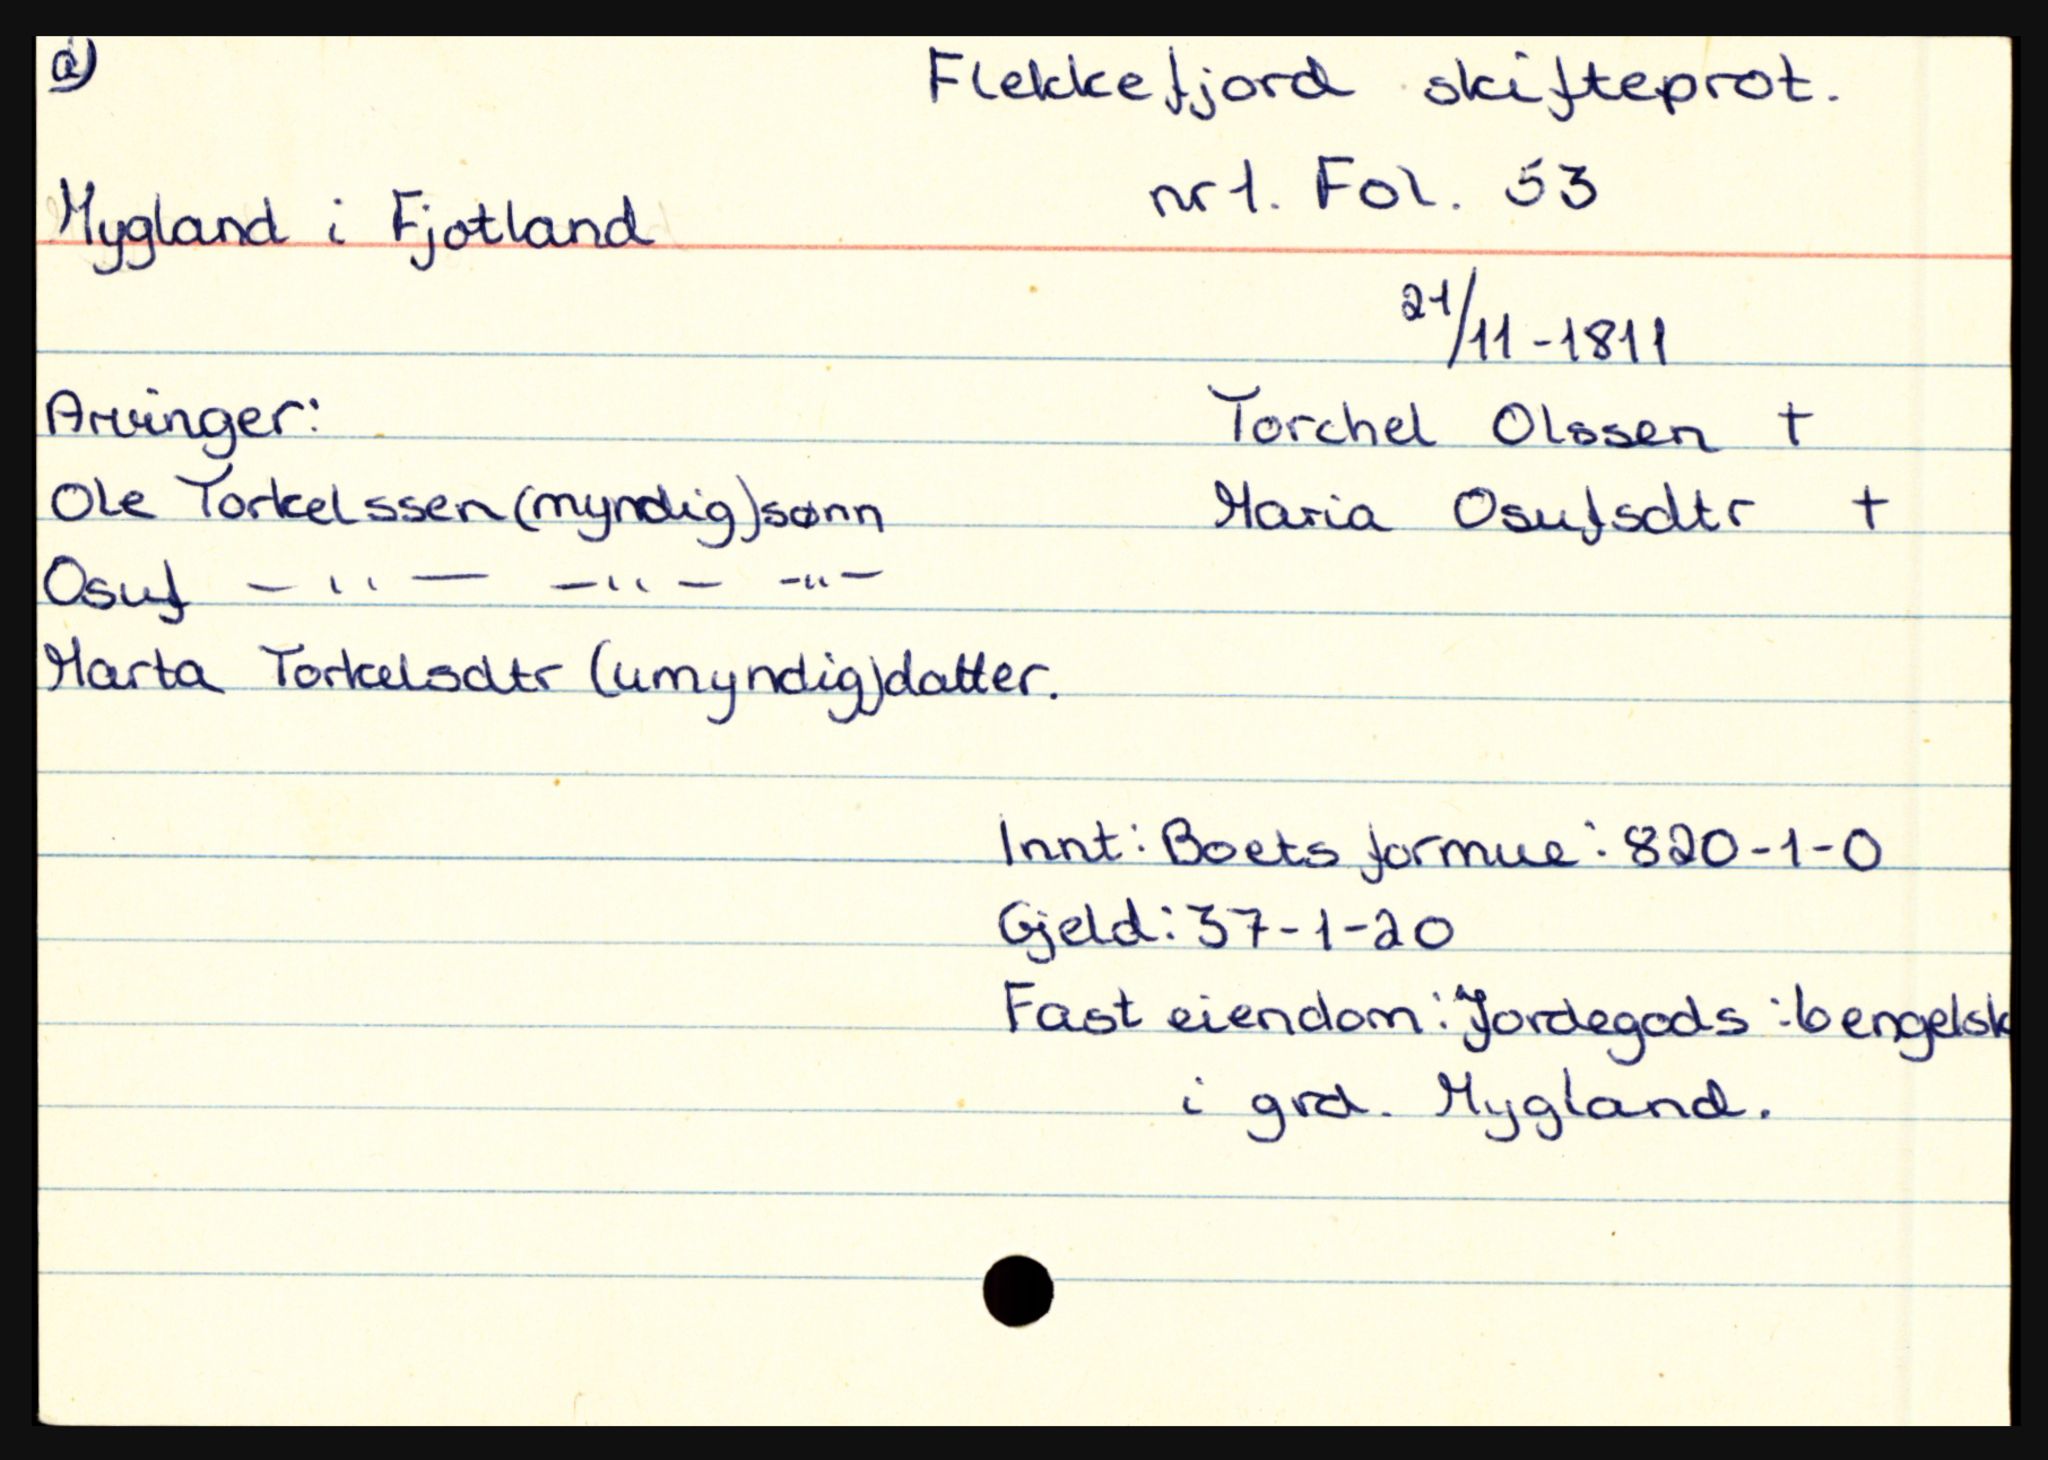 a)
Flekkefjord skifteprot.
nr 1. Fol. 53
Mygland i Fjotland
21/11-1811
Arvinger:
Torchel Olssen †
Ole Torkelssen (myndig) sønn
Maria Osufsdtr †
Osuf — " — — " — — " —
Marta Torkelsdtr (umyndig) datter.
Innt: Boets formue: 820-1-0
Gjeld: 37-1-20
Fast eiendom: Jordegods: 6 engelsk
i grd. Mygland.